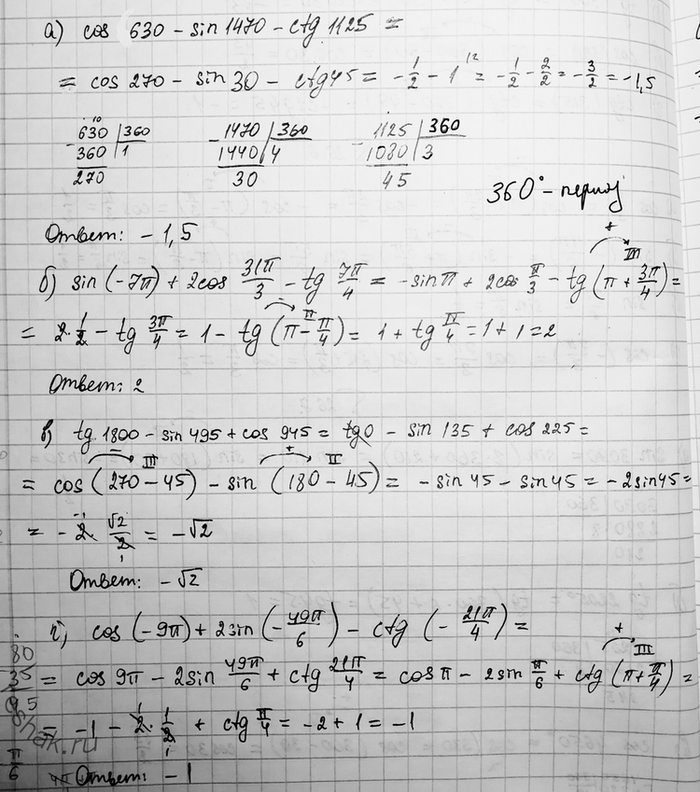 а) cos (630 - sin 1470 - ctg 1125 =
= cos 270 - sin 30 - ctg 45 = -1/2 - 1^{12} = -1/2 - 2/2 = -3/2 = -1,5
630 | 360
360 | 1
270
1470 | 360
1440 | 4
30
1125 | 360
1080 | 3
45
360° - период
Ответ: - 1,5
б) sin (-7π) + 2cos 31π/3 - tg 7π/4 = - sin π + 2cos π/3 - tg (π + 3π/4) =
= 2·1/2 - tg 3π/4 = 1 - tg (π - π/4) = 1 + tg π/4 = 1 + 1 = 2
Ответ: 2
в) tg 1800 - sin 495 + cos 945 = tg 0 - sin 135 + cos 225 =
= cos (270 - 45) - sin (180 - 45) = - sin 45 - sin 45 = - 2 sin 45 =
= - 2 · √2/2 = - √2
Ответ: - √2
г) cos (-9π) + 2 sin (- 49π/6) - ctg (- 21π/4) =
= cos 9π - 2 sin 49π/6 + ctg 21π/4 = cos π - 2 sin π/6 + ctg (π + π/4) =
= -1 - 2 · 1/2 + ctg π/4 = -2 + 1 = -1
Ответ: - 1